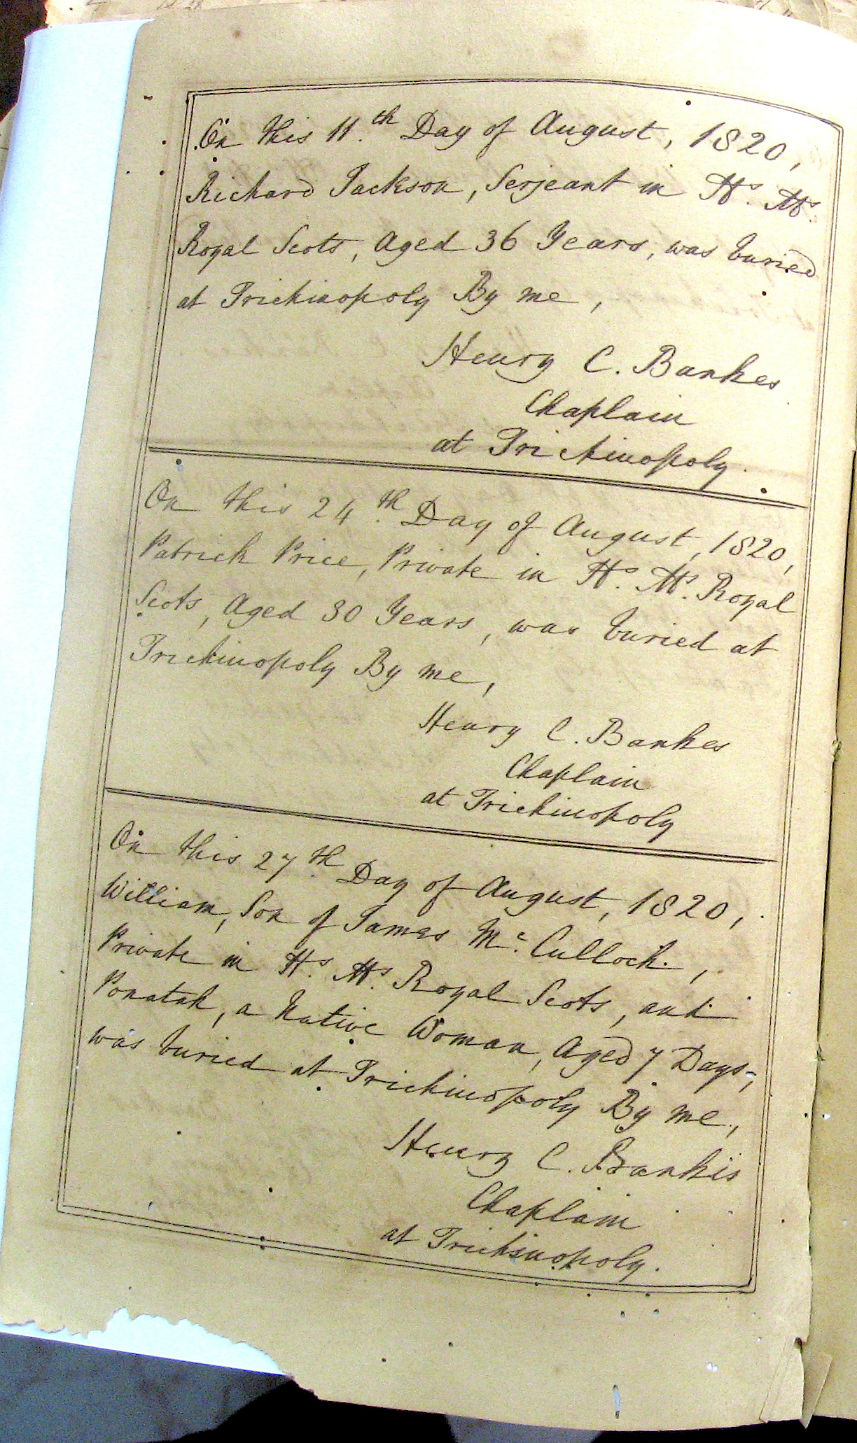 On this 11.th Day of August, 1820,
Richard Jackson, Serjeant in H.s M.s
Royal Scots, Aged 36 Years, was buried
at Trichinopoly By me,
Henry C. Bankes
Chaplain
at Trichinopoly.
On this 24.th Day of August, 1820,
Patrick Price, Private in H.s M.s Royal
Scots, Aged 30 Years, was buried at
Trichinopoly By me,
Henry C. Bankes
Chaplain
at Trichinopoly
On this 27.th Day of August, 1820,
William, Son of James Mc. Culloch,
Private in H.s M.s Royal Scots, and
Ponatah, a Native Woman, Aged 7 Days,
was buried at Trichinopoly By me,
Henry C. Bankes
Chaplain
at Trichinopoly.